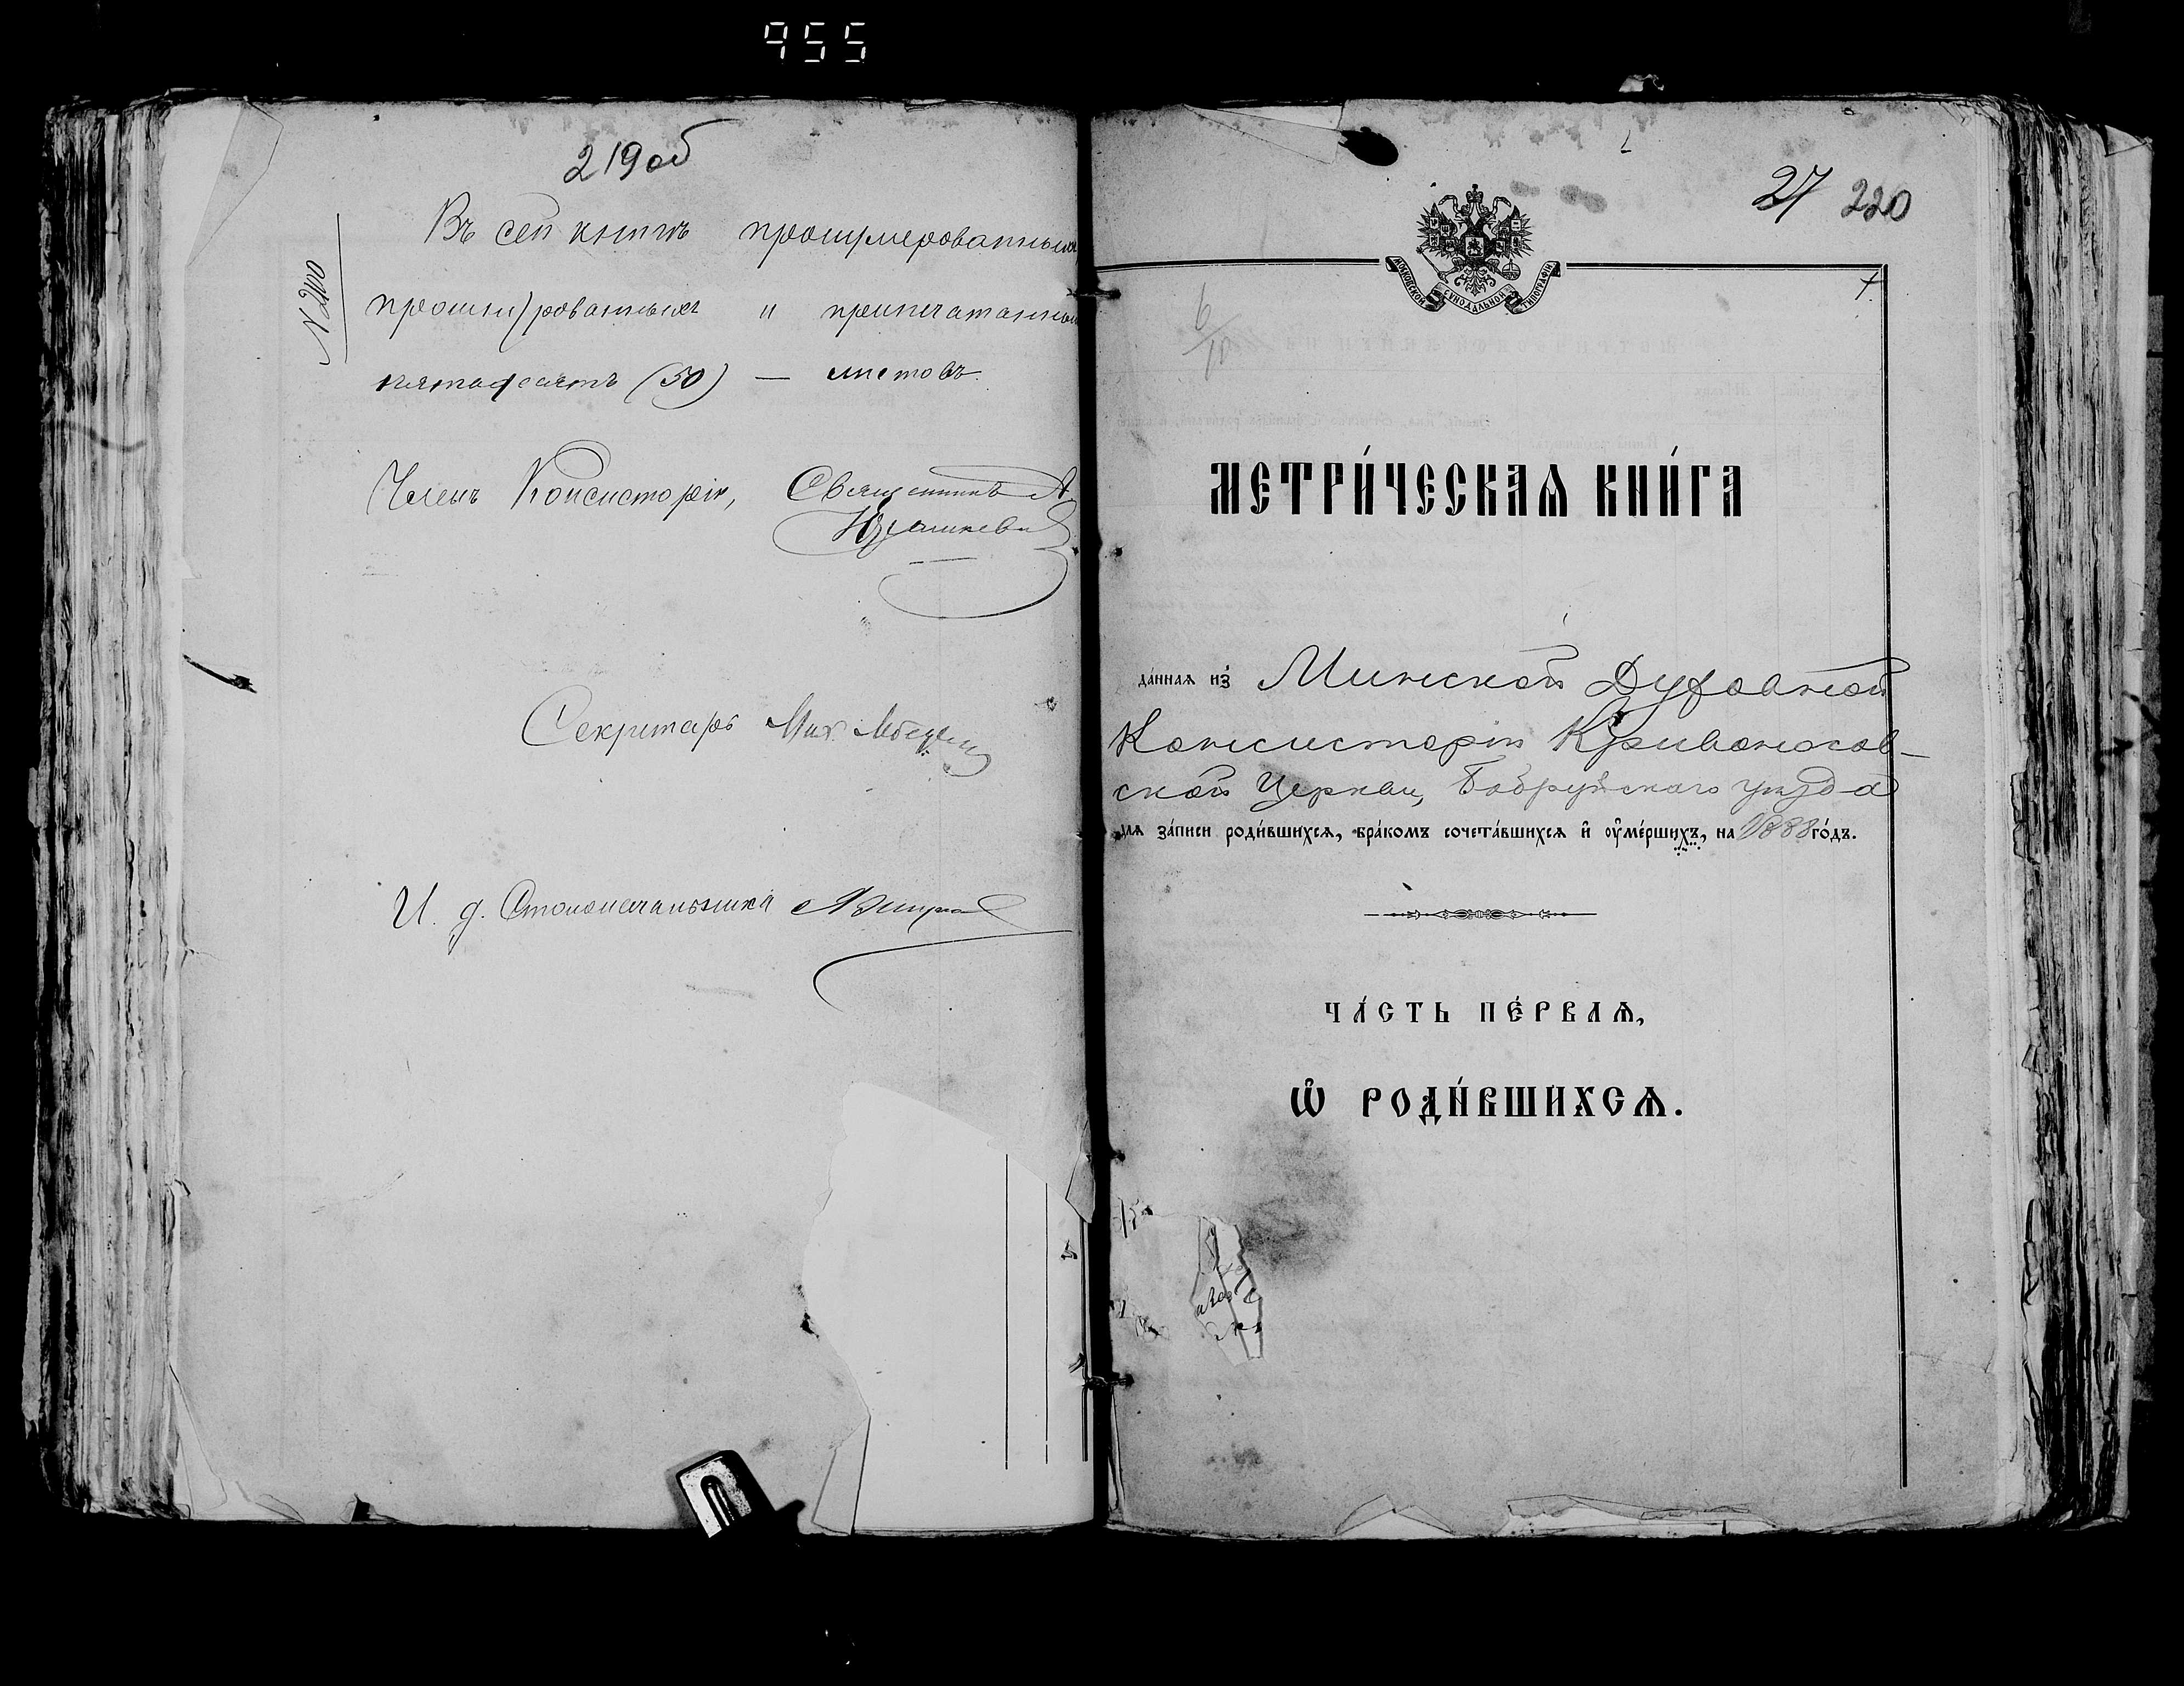 955
219 об
Въ сей книгѣ пронумерованныхъ
прошнурованныхъ и припечатанныхъ
пятьдесятъ (50) — листовъ.
N 2400
Членъ Консисторіи, Священникъ А
Юрашкевичъ
Секретарь Мих.
И. д. Столоначальника
27 220
МОСКОВСКОЙ СѴНОДАЛЬНОЙ ТИПОГРАФІИ
6/10
МЕТРИ́ЧЕСКАѦ КНИ́ГА
да́ннаѧ из̾ Минской Духовной
Консисторіи Кривоносов-
ской церкви, Бобруйскаго уѣзда
длѧ за́писи роди́вшихсѧ, бра́комъ сочета́вшихсѧ и҆ ᲂу҆ме́ршихъ, на 1888 го́дъ.
ЧА́СТЬ ПЕ́РВАѦ,
Ѡ҆ РОДИ́ВШИХСѦ.